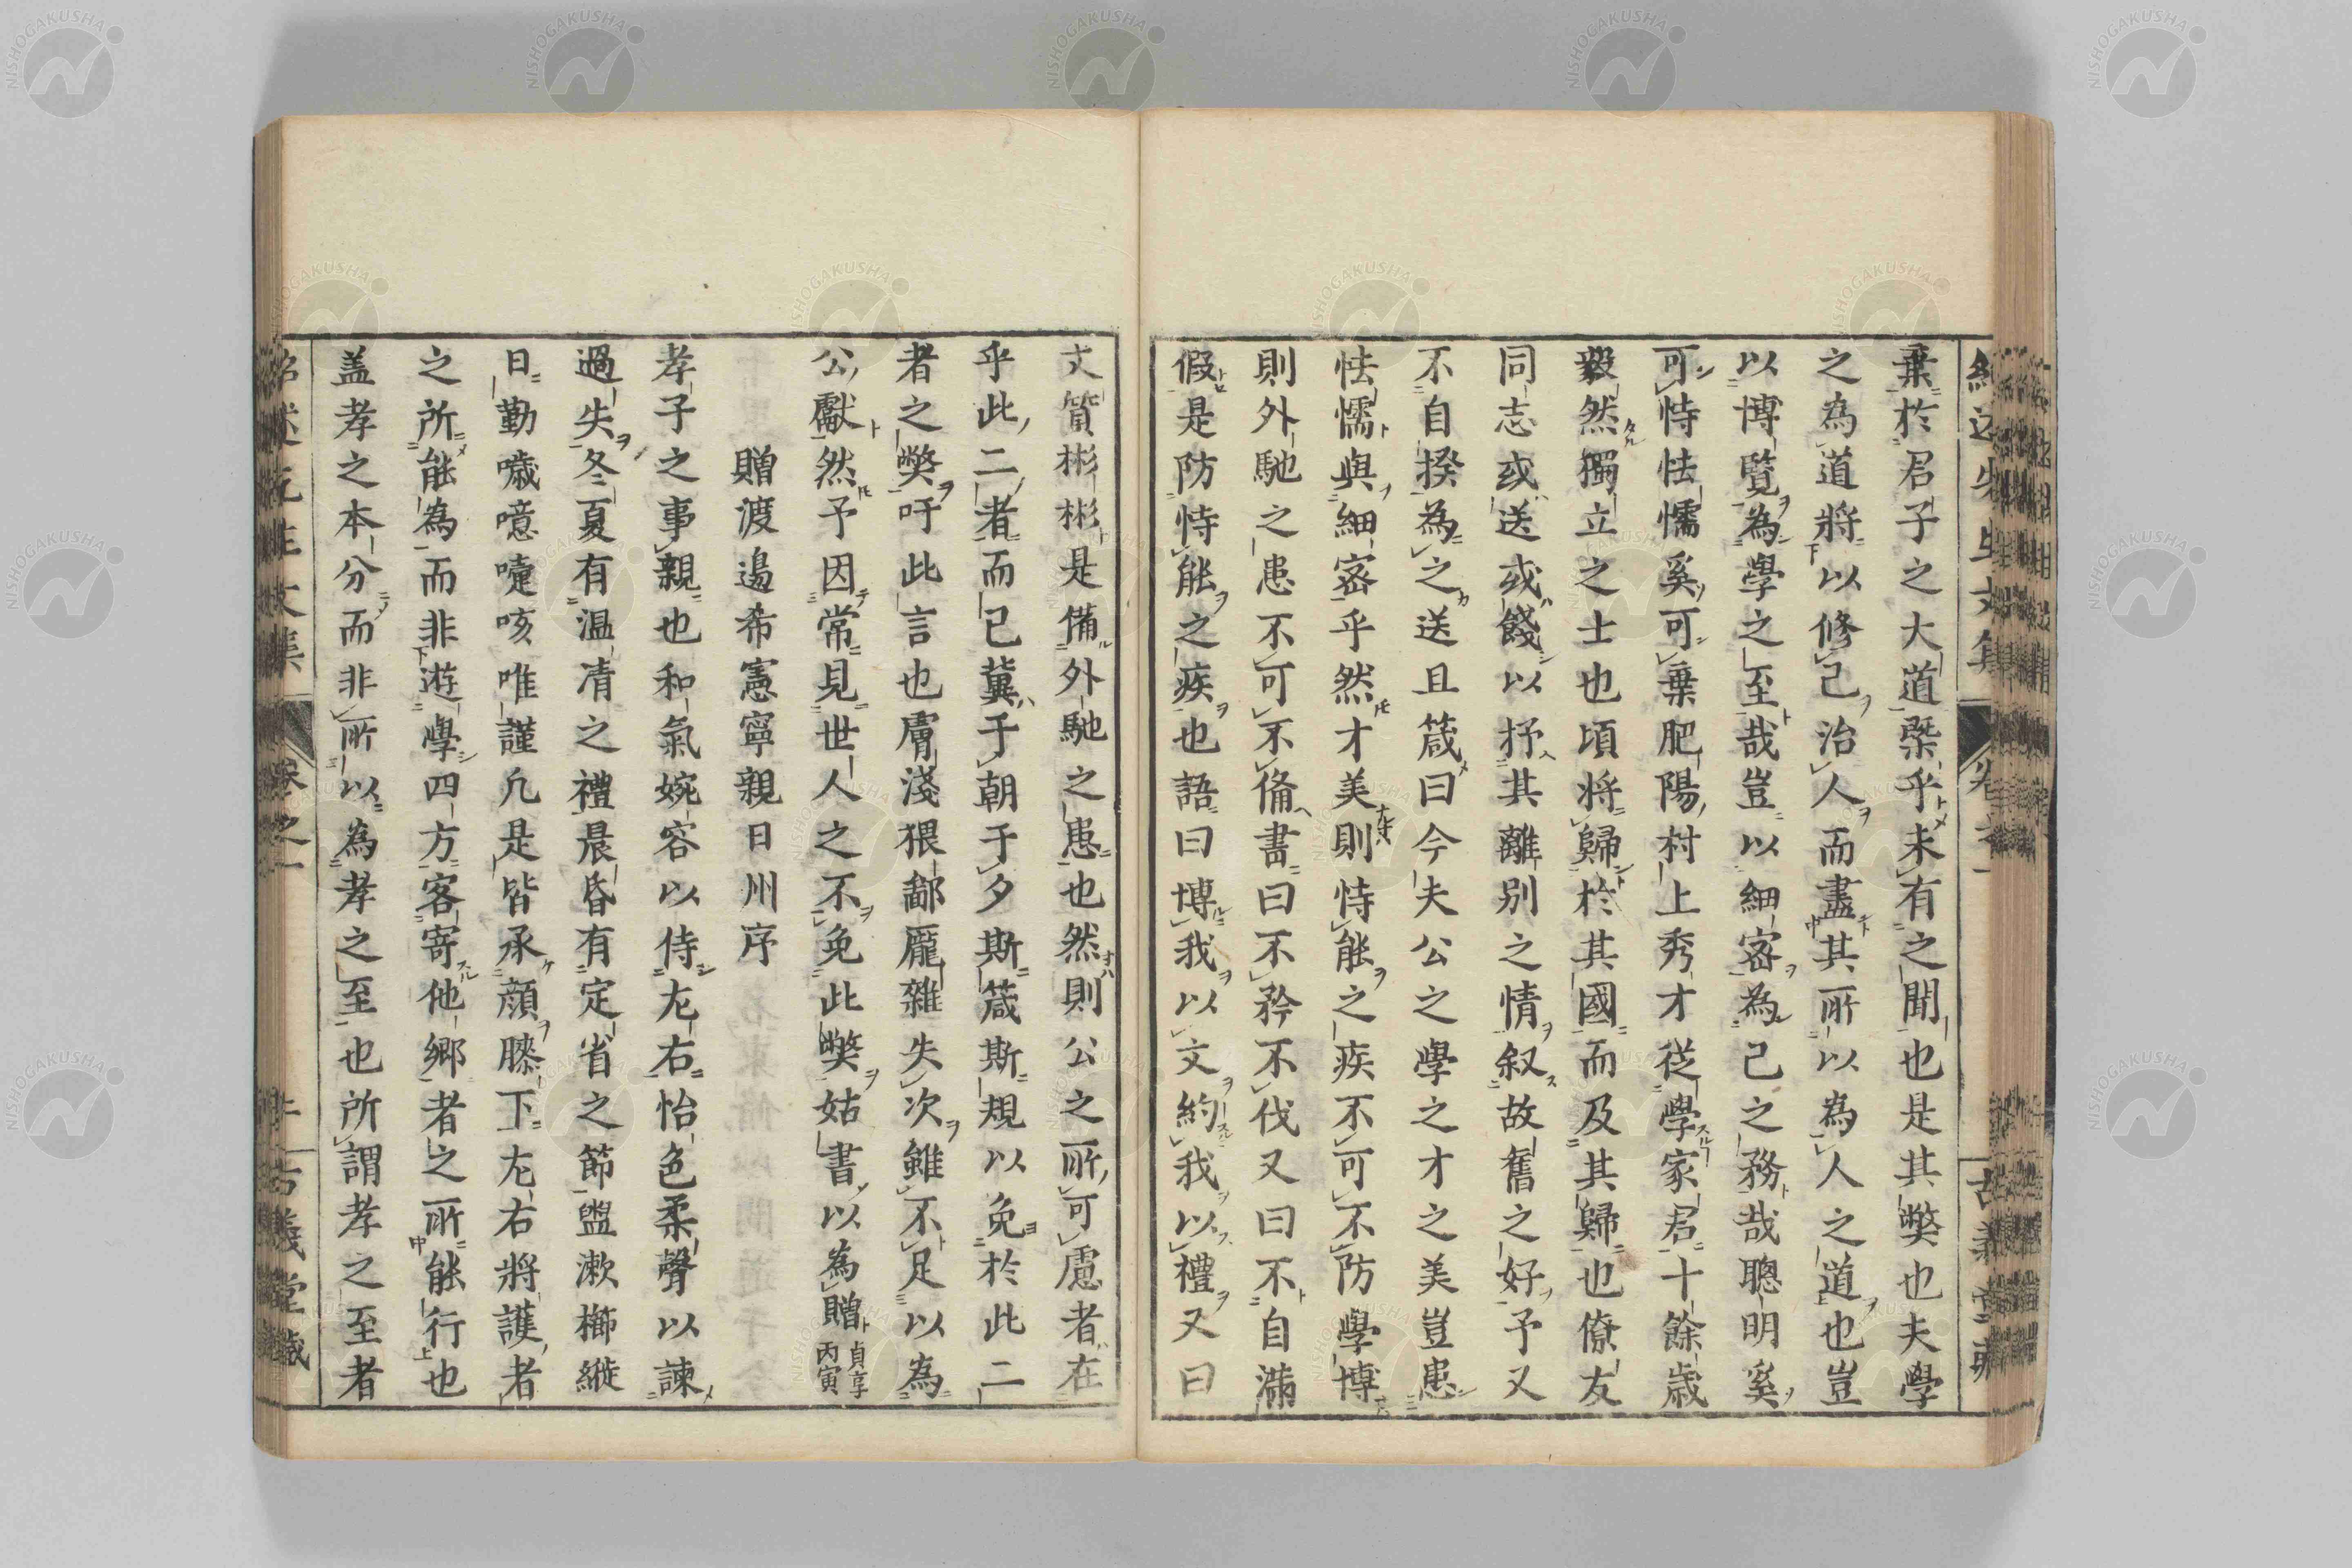 棄於君子之大道槩乎未有之聞也是其獘也夫學
之為道將以修己治人而盡其所以為人之道也豈
以博覽為學之至哉豈以細密為己之務哉聰明奚
可恃怯懦奚可棄肥陽村上秀才從學家君十餘歳
毅然獨立之士也頃將歸於其國而及其歸也僚友
同志或送或餞以抒其離别之情叙故舊之好予又
不自揆為之送且箴曰今夫公之學之才之美豈患
怯懦與細密乎然才美則恃能之疾不可不防學博
則外馳之患不可不脩書曰不矜不伐又曰不自滿
假是防恃能之疾也語曰博我以文約我以禮又曰
文質彬彬是備外馳之患也然則公之所可慮者在
乎此二者而已冀于朝于夕斯箴斯規以免於此二
者之獘吁此言也膚淺猥鄙厖雜失次雖不足以為
公獻然予因常見世人之不免此獘姑書以為贈 貞享丙寅
贈渡邉希憲寧親日州序
孝子之事親也和氣婉容以侍左右怡色柔聲以諫
過失冬夏有温凊之禮晨昏有定省之節盥漱櫛縰
日勤噦噫嚏咳唯謹凡是皆承顔膝下左右將護者
之所能為而非遊學四方客寄他郷者之所能行也
盖孝之本分而非所以為孝之至也所謂孝之至者
紹述先生文集 卷之一 古義堂藏